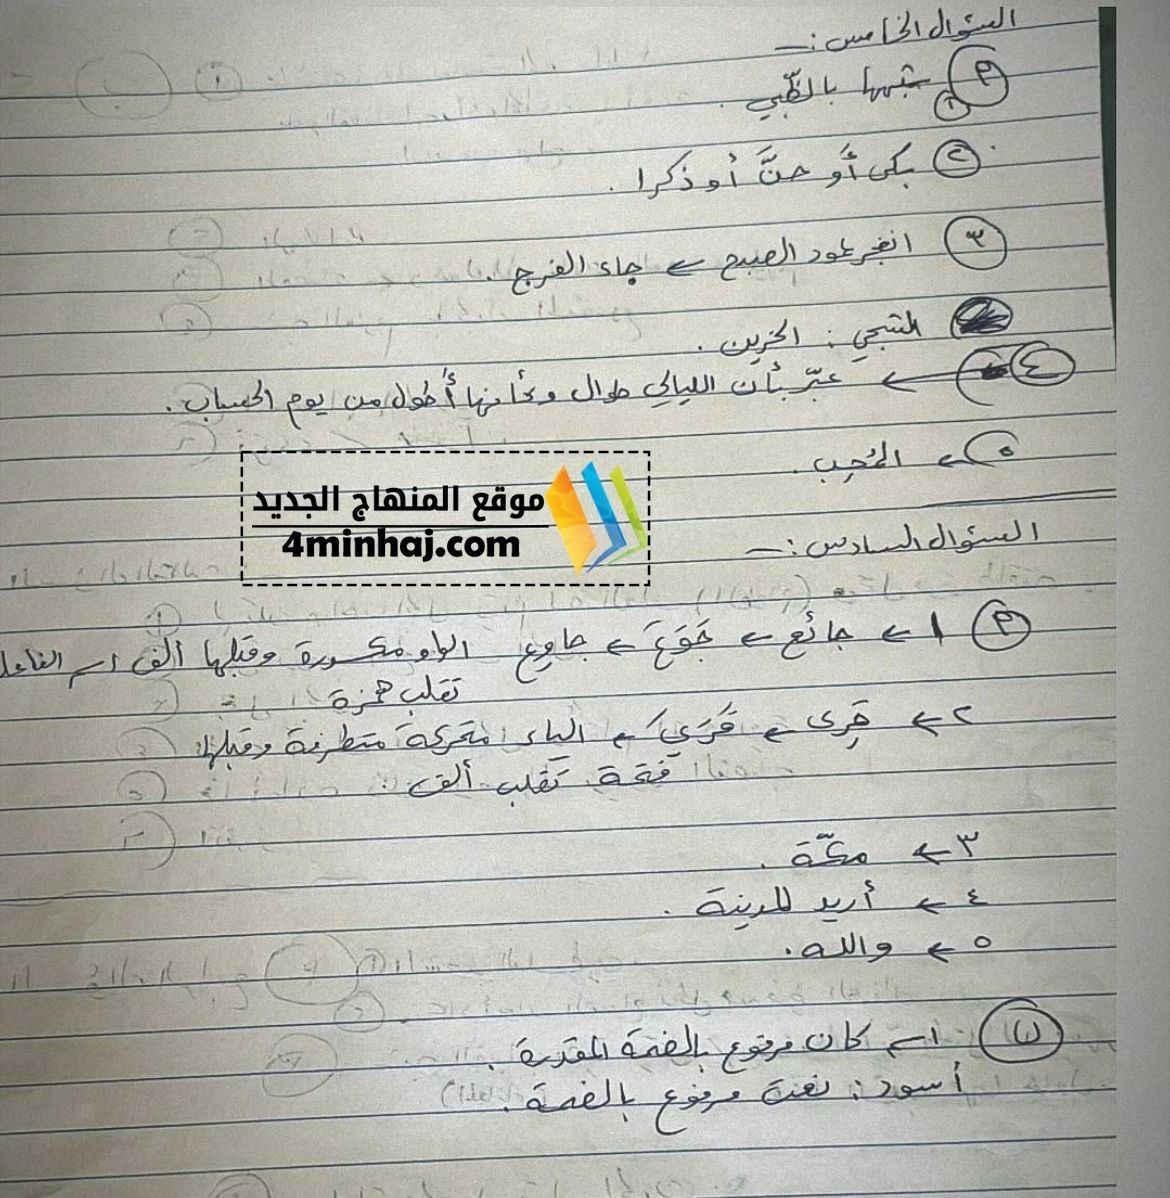 السؤال الخامس :-
(أ) (١) شبهها بالظّبي .
(٢) بكى أَو حنَّ أو ذكرا .
(٣) انفجر عمود الصبح ← جاء الفرج .
الشجي : الحزين .
(٤) ← عبّر بأن الليالي طوال وكأنها أطول من يوم الحساب .
٥ ← المُحِب .
موقع المنهاج الجديد
4minhaj.com
السؤال السادس :-
(أ) ١ ← جائع ← جَوَعَ ← جاوِع الواو مكسورة وقبلها ألف اسم الفاعل
تقلب همزة
٢ ← قِرى ← قَرَيَ ← الياء متحركة متطرفة وقبلها
فتحة تقلب ألف .
٣ ← مكّة .
٤ ← أريد المدينة .
٥ ← والله .
(ب) اسم كان مرفوع بالضمة المقدرة .
أسود : نعت مرفوع بالضمة .